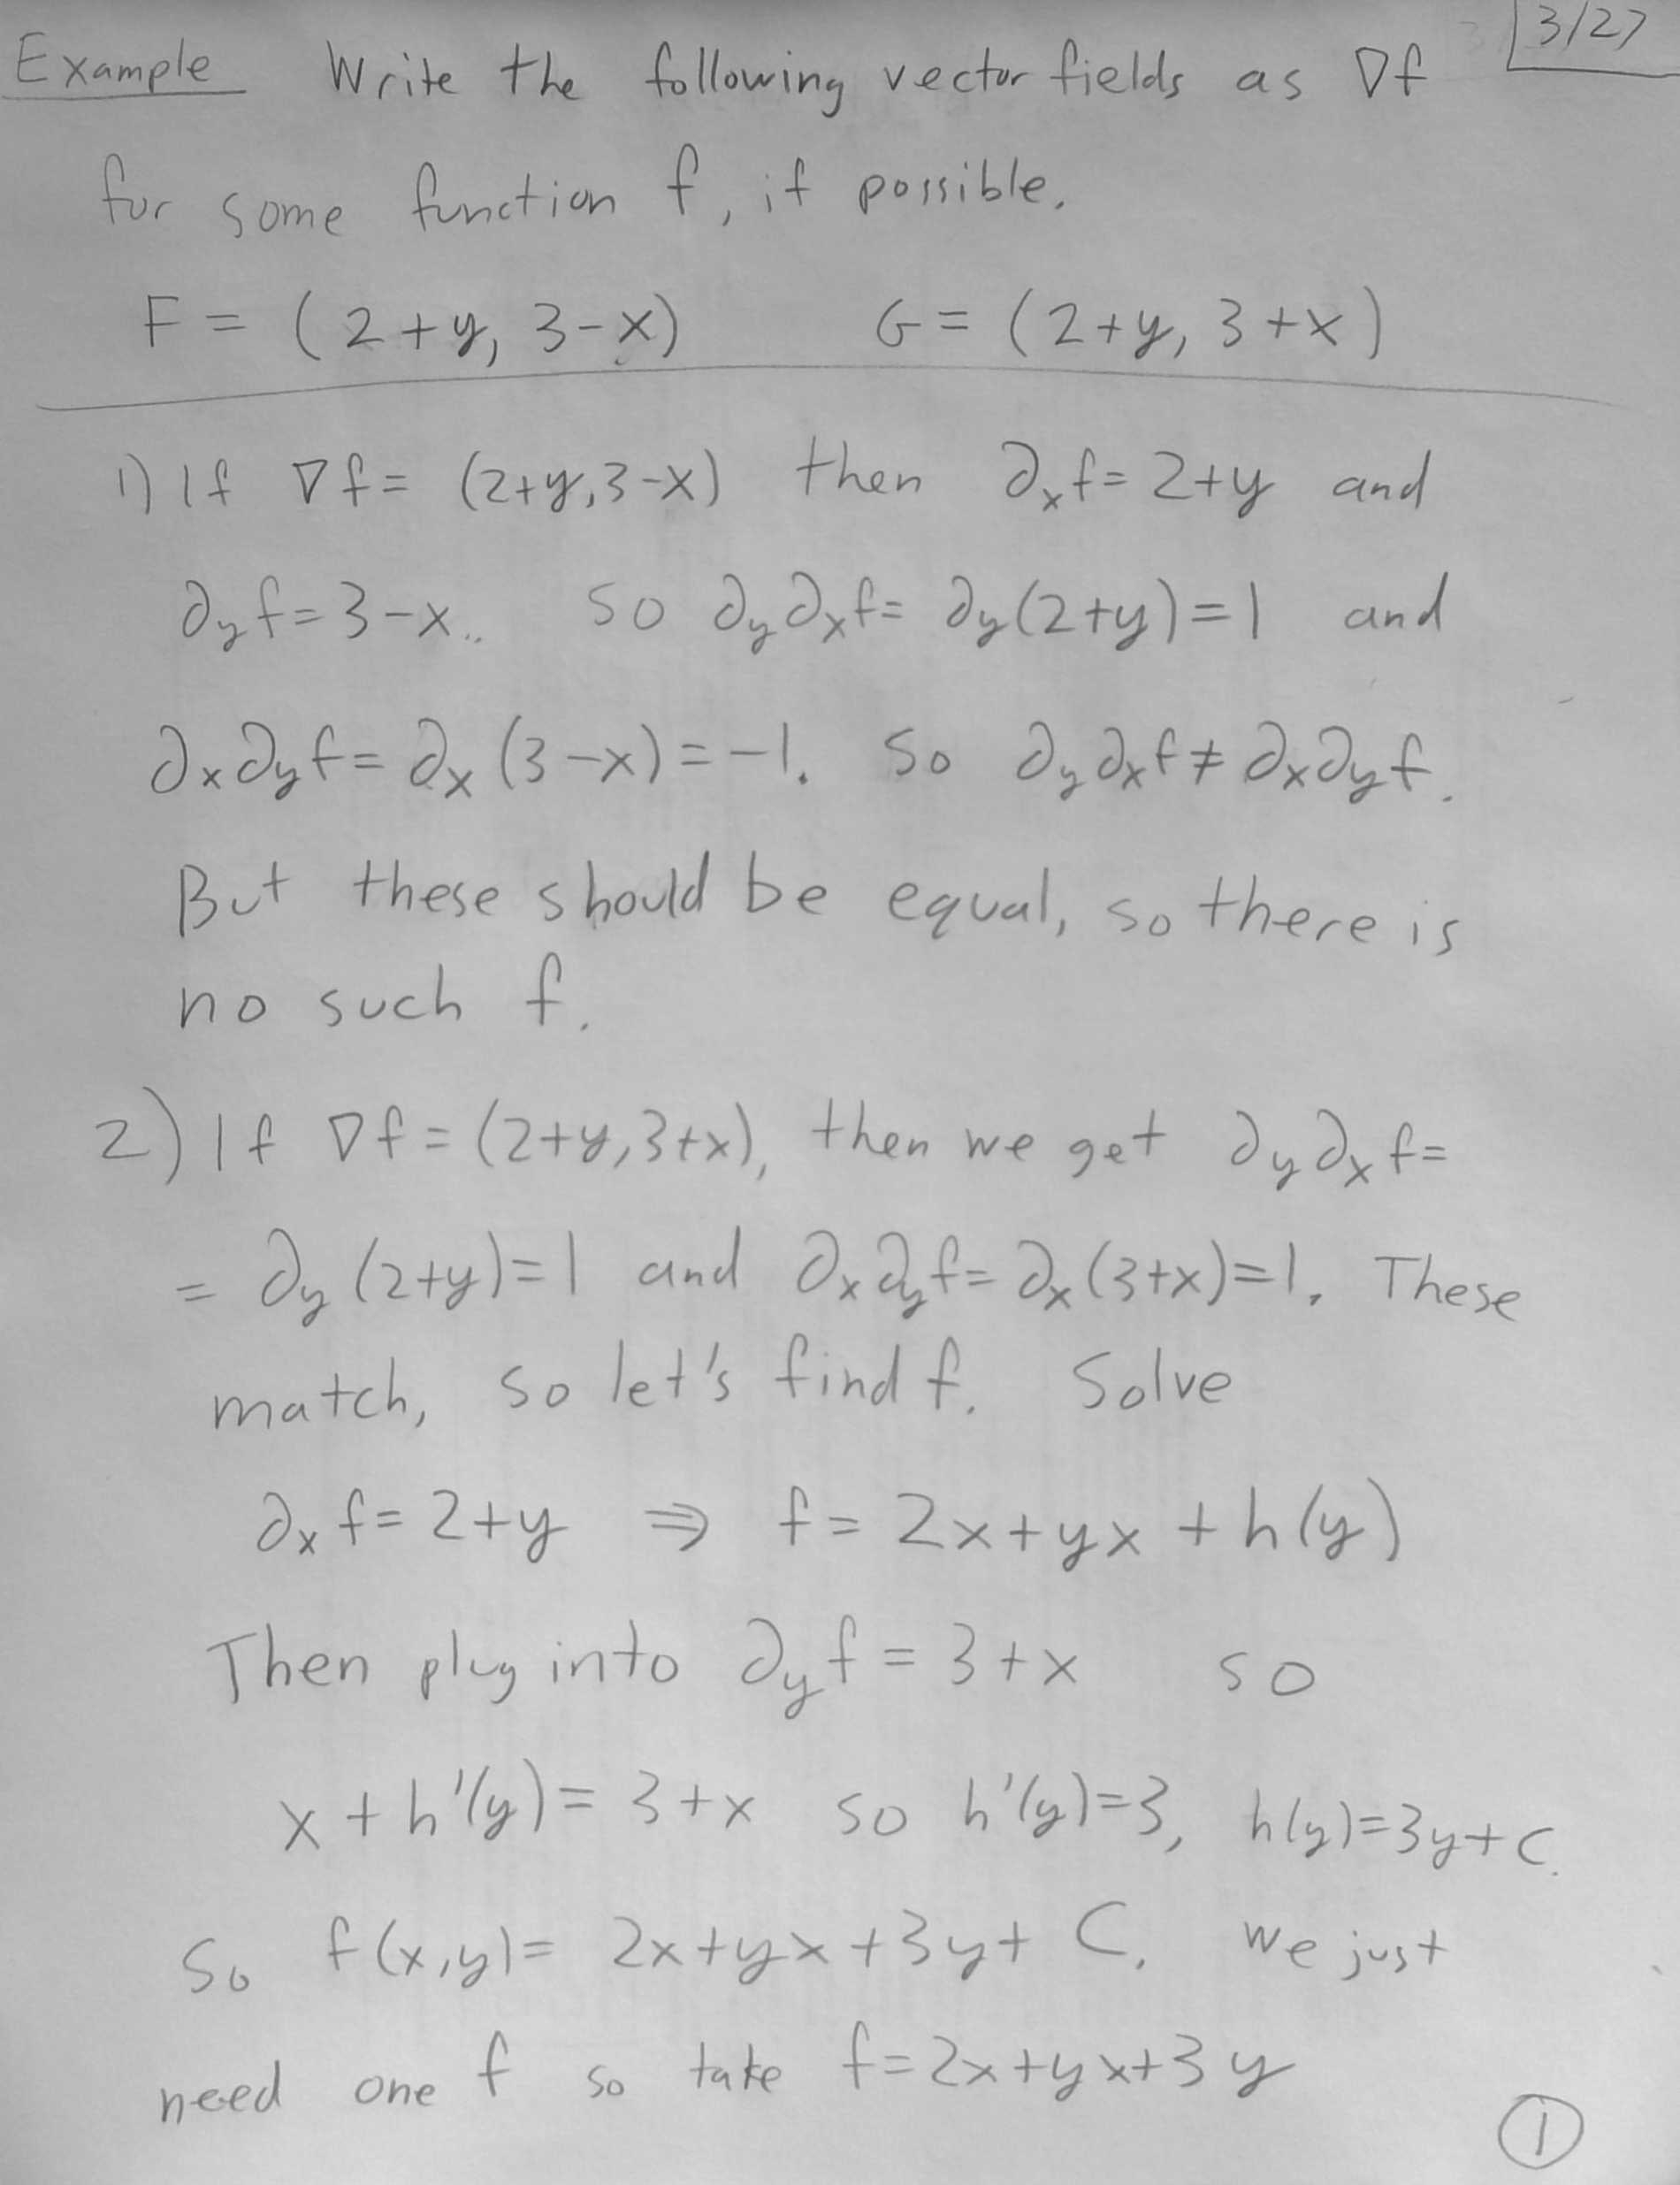 3/27
Example Write the following vector fields as ∇f
for some function f, if possible.
F = (2+y, 3-x) G = (2+y, 3+x)
1) If ∇f = (2+y, 3-x) then ∂ₓf = 2+y and
∂_y f = 3-x.. so ∂_y ∂ₓ f = ∂_y (2+y) = 1 and
∂ₓ ∂_y f = ∂ₓ (3-x) = -1. So ∂_y ∂ₓ f ≠ ∂ₓ ∂_y f.
But these should be equal, so there is
no such f.
2) If ∇f = (2+y, 3+x), then we get ∂_y ∂ₓ f =
= ∂_y (2+y) = 1 and ∂ₓ ∂_y f = ∂ₓ (3+x) = 1. These
match, so let's find f. Solve
∂ₓ f = 2+y ⇒ f = 2x + yx + h(y)
Then plug into ∂_y f = 3+x so
x + h'(y) = 3+x so h'(y) = 3, h(y) = 3y + C.
So f(x,y) = 2x + yx + 3y + C. We just
need one f so take f = 2x + yx + 3y
①